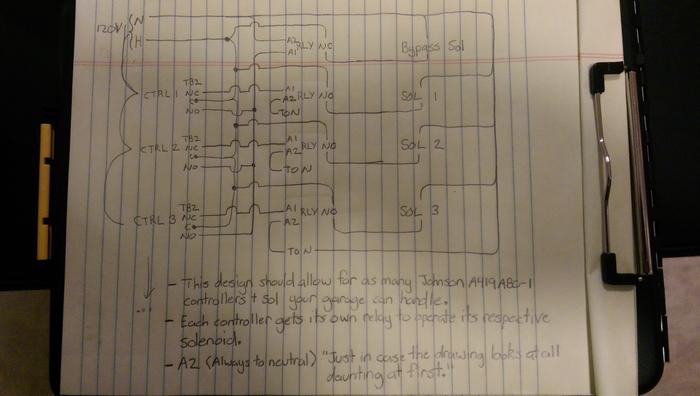 120V N
H
A2 RLY NC
A1
Bypass Sol
TB2
CTRL 1 NC A1 RLY NO SOL 1
C A2
NO TO N
TB2
CTRL 2 NC A1 RLY NO SOL 2
C A2
NO TO N
TB2
CTRL 3 NC A1 RLY NO SOL 3
C A2
NO
TO N
...
- This design should allow for as many Johnson A419ABC-1
controllers + sol your garage can handle.
- Each controller gets its own relay to operate its respective
solenoid.
- A2 (Always to neutral) "Just in case the drawing looks at all
daunting at first."